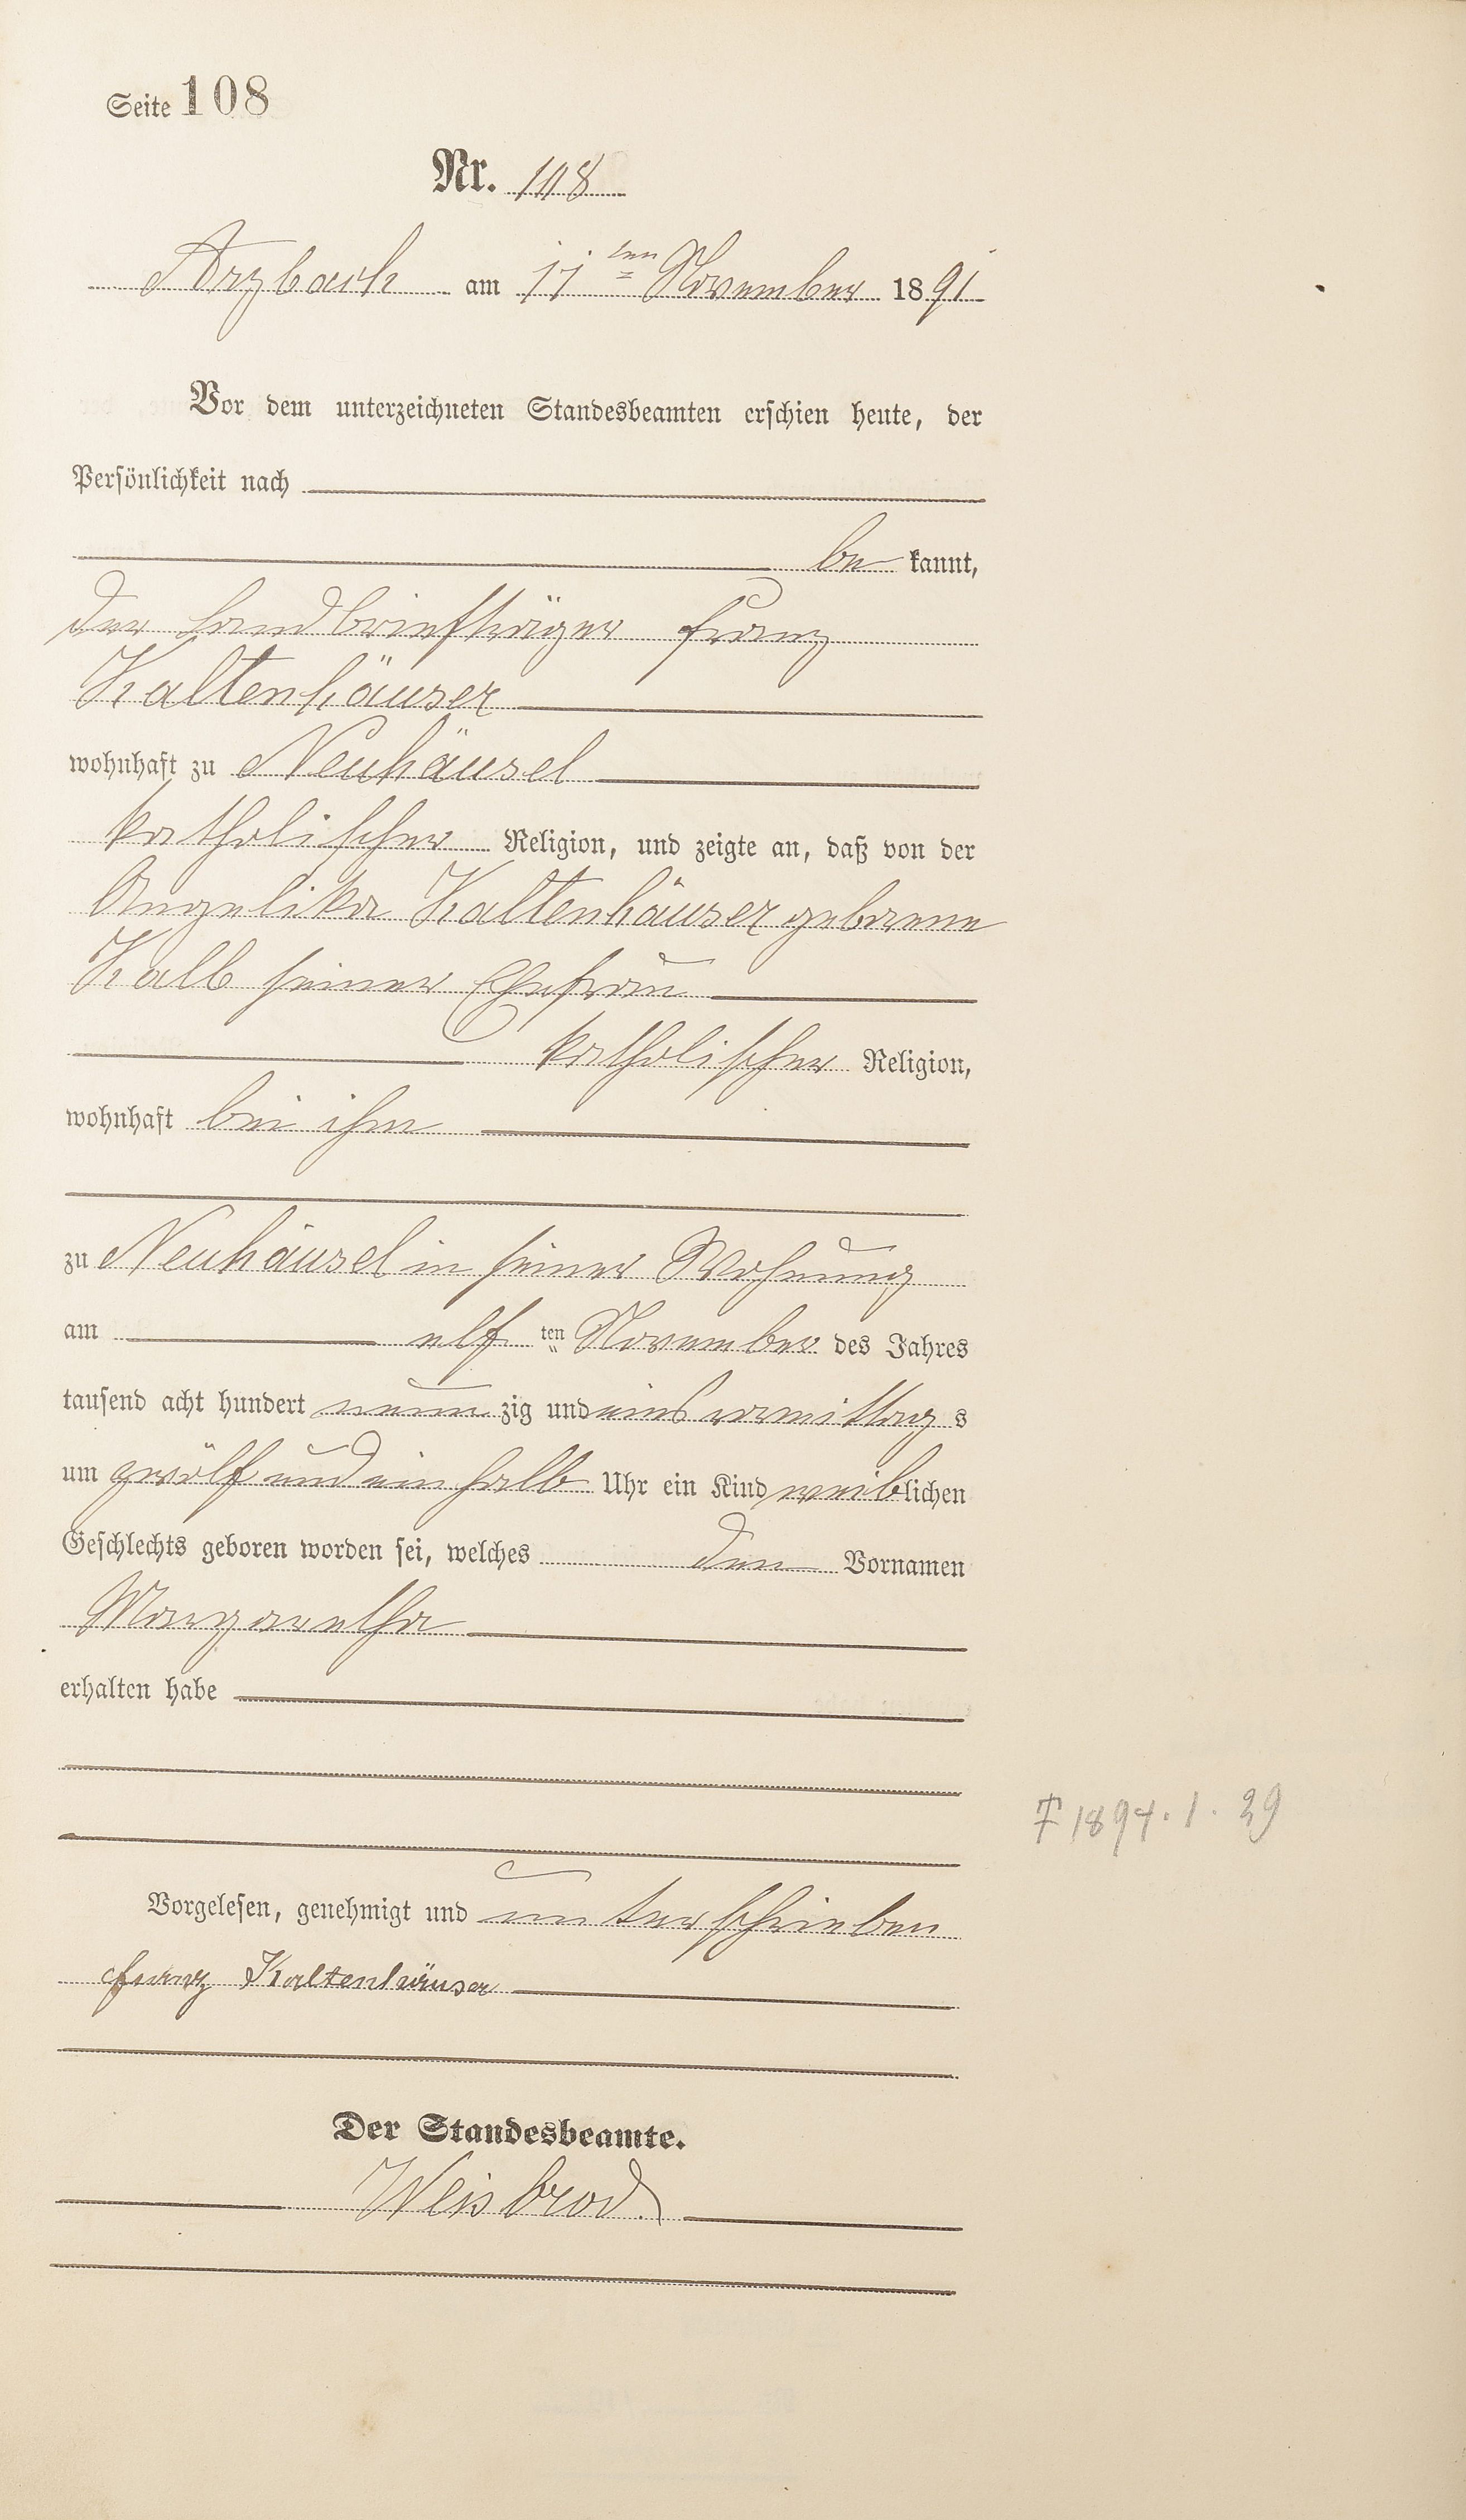 Seite 108
Nr. 108
Arzbach am 11ten November 1891
Vor dem unterzeichneten Standesbeamten erschien heute, der
Persönlichkeit nach
be kannt,
der Landbriefträger Franz
Kaltenhäuser
wohnhaft zu Neuhäusel
katholischer Religion, und zeigte an, daß von der
Angelika Kaltenhäuser geborene
Kalb seiner Ehefrau
katholischer Religion,
wohnhaft bei ihm
zu Neuhäusel in seiner Wohnung
am elf ten November des Jahres
tausend acht hundert neun zig und eins vormittag s
um zwölf und ein halb Uhr ein Kind weiblichen
Geschlechts geboren worden sei, welches den Vornamen
Margaretha
erhalten habe
† 1894. 1. 29
Vorgelesen, genehmigt und unterschrieben
Franz Kaltenhäuser
Der Standesbeamte.
Weisbrod.